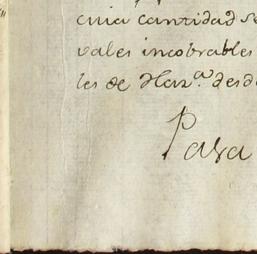 cuia cantidad se
vales incobrables
les de Haz.ª desde
Para